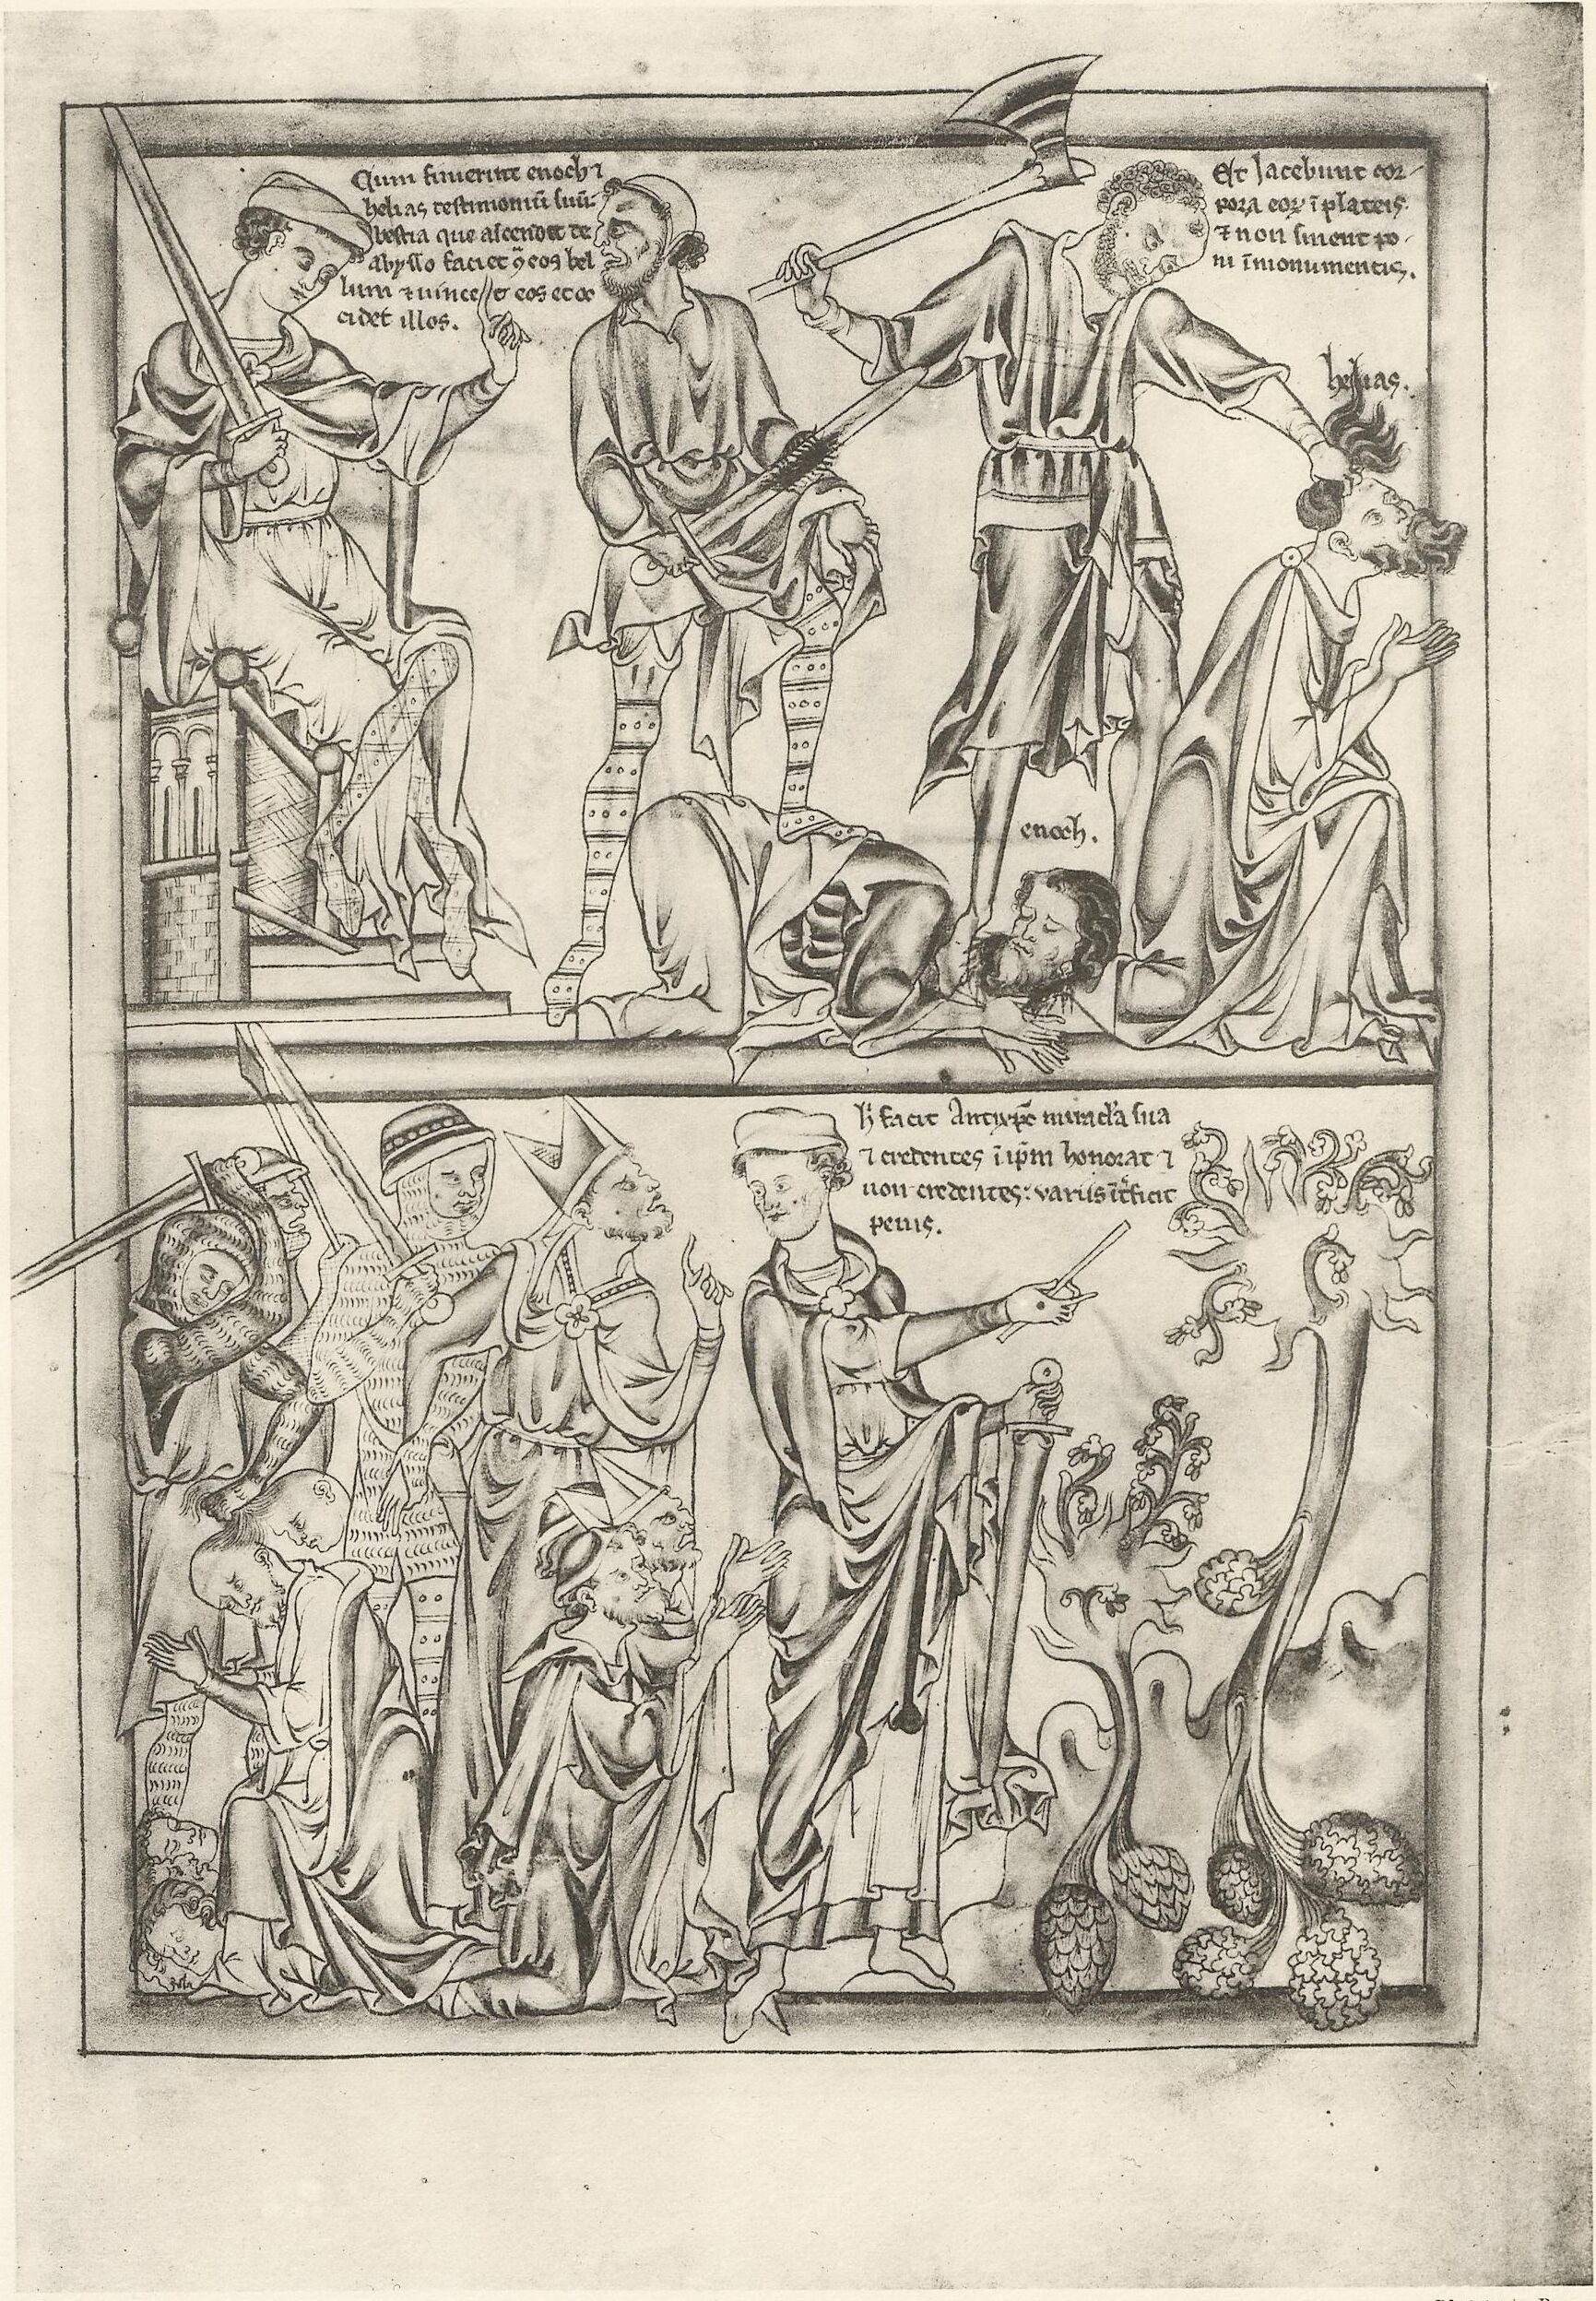 Cum finierint enoch ⁊
helias testimoniũ suũ
bestia que ascendit de
abysso faciet ꝯ eos bel
lum ⁊ uincet eos et oc
cidet illos.
Et Jacebunt cor-
pora eoꝝ ĩ plateis
⁊ non sinent po-
ni ĩ monumentis.
helias.
enoch.
facit Antixp̃c miracla sua
⁊ credentes ĩ ip̃m honorat ⁊
non credentes: variis ĩt̃ficit
penis.